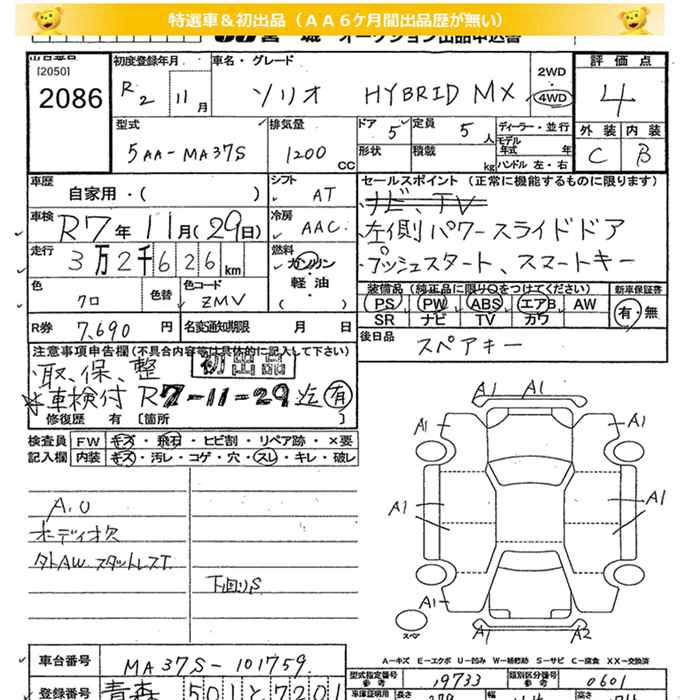 特選車＆初出品（ＡＡ６ケ月間出品歴が無い）
オークション出品申込書
[2050]
2086
初度登録年月
R2 11月
車名・グレード
ソリオ HYBRID MX
2WD
4WD
評価点
4
外装 内装
C B
型式
5AA-MA37S
排気量
1200 CC
ドア 5
定員 5 人
形状
積載 kg
ディーラー・並行
モデル年式 年
ハンドル 左・右
車歴
自家用・( )
シフト
AT
セールスポイント (正常に機能するものに限ります)
ナビ、TV
左側パワースライドドア
プッシュスタート、スマートキー
車検
R7年11月(29日)
冷房
AAC
走行
3万2千626km
燃料
ガソリン・軽油
( )
装備品 (純正品に限り○をつけてください)
新車保証書
PS PW ABS エアB AW
有・無
SR ナビ TV カワ
色
クロ
色替
色コード
ZMV
R券 7,690 円
名変通知期限 月 日
後日品
スペアキー
注意事項申告欄 (不具合内容等は具体的に記入して下さい)
初出品
取、保、整
車検付 R7-11-29迄 有
修復歴 有 [箇所 ]
検査員
記入欄
FW キズ・飛石・ヒビ割・リペア跡・×要
内装 キズ・汚レ・コゲ・穴・スレ・キレ・破レ
A1 A1
A1 A1
A1 A1
A1 A1
スペア
A1 A2
A.U
オーディオ欠
タトAW スタットレスT.
下回りS
A－キズ E－エクボ U－凹み W－補修跡 S－サビ C－腐食 XX－交換済
車台番号
MA37S-101759
型式指定番号
参考
19733
類別区分番号
参考
0601
登録番号
青森 501 と 7201
車庫証明用
長さ
幅
高さ